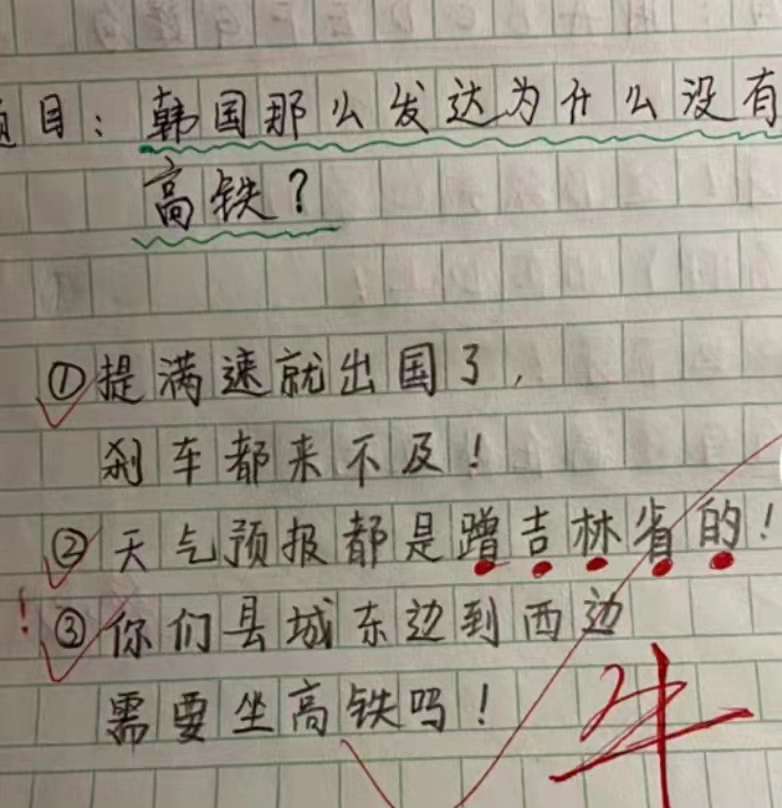 题目：韩国那么发达为什么没有
高铁？
①提满速就出国了，
刹车都来不及！
②天气预报都是蹭吉林省的！
！③你们县城东边到西边
需要坐高铁吗！
牛